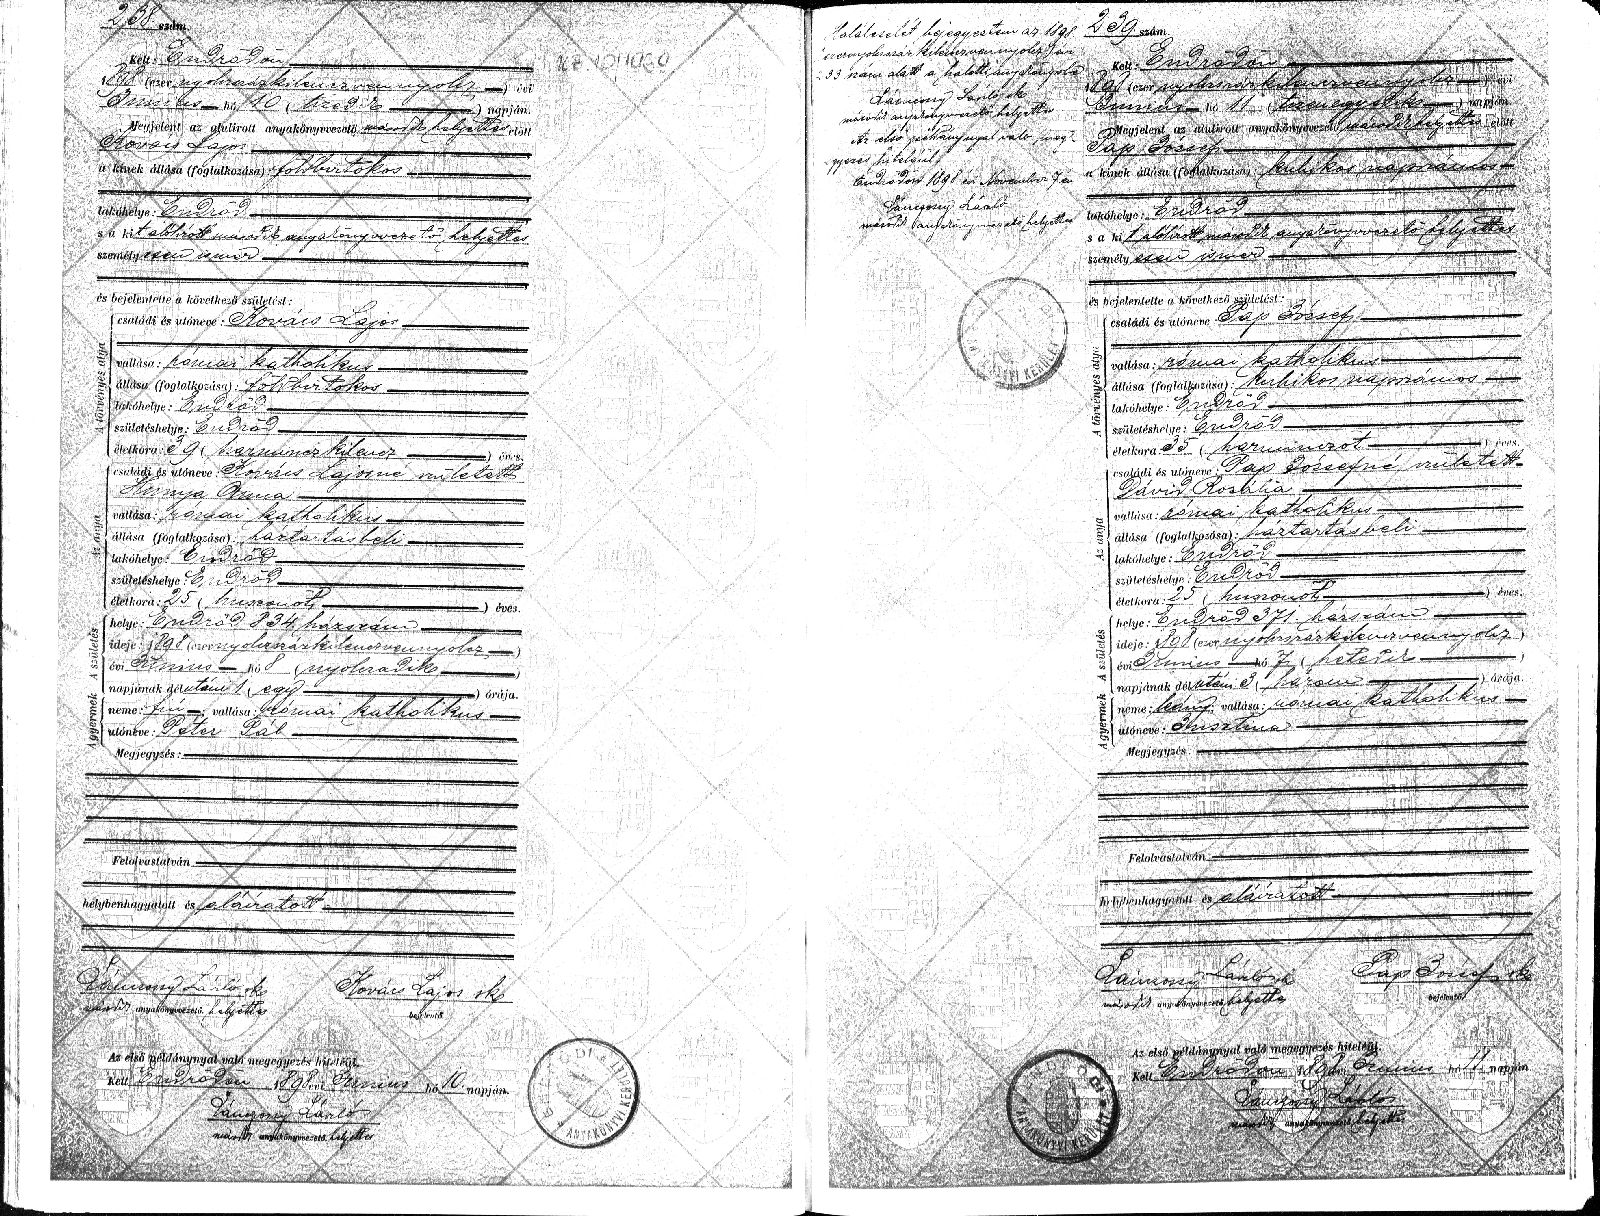 238 szám.
Kelt: Endrődön
1898 (ezer nyolcszázkilenczvennyolcz) évi
Junius hó 10 (tizedik) napján.
Megjelent az alulirott anyakönyvvezető másodk helyettes előtt
Kovács Lajos
a kinek állása (foglalkozása): földbirtokos
lakóhelye: Endrőd
s a kit alólirott másodk anyakönyvvezető helyettes
személyesen ismer
és bejelentette a következő születést:
A törvényes atyja
családi és utóneve: Kovács Lajos
vallása: római katholikus
állása (foglalkozása): földbirtokos
lakóhelye: Endrőd
születéshelye: Endrőd
életkora: 39 (harminczkilencz) éves.
Az anyja
családi és utóneve: Kovács Lajosné született
Hunya Anna
vallása: római katholikus
állása (foglalkozása): háztartásbeli
lakóhelye: Endrőd
születéshelye: Endrőd
életkora: 25 (huszonöt) éves.
A születés
helye: Endrőd 834 házszám
ideje: 1898 (ezernyolczszázkilenczvennyolcz)
évi Junius hó 8 (nyolczadik)
napjának délután 1 (egy) órája.
A gyermek
neme: fiu vallása: római katholikus
utóneve: Péter Pál
Megjegyzés:
Felolvastatván
helybenhagyatott és aláíratott
Lánczossy László sk Kovács Lajos sk
másodk anyakönyvvezető helyettes bejelentő.
Az első példánynyal való megegyezés hiteléül.
Kelt Endrődön 1898 évi Junius hó 10 napján.
Lánczossy László
másodk anyakönyvvezető helyettes
ANYAKÖNYVI KERÜLET
Halálesetét bejegyeztem az 1898
ezernyolczszázkilenczvennyolcz évi
233 szám alatt a halotti anyakönyvbe
Lánczossy László sk
másodk anyakönyvvezető helyettes
Az első példánynyal való meg-
egyezés hiteléül
Endrődön 1898 évi November 7 én
Lánczossy László
másodk anyakönyvvezető helyettes
239 szám.
Kelt: Endrődön
1898 (ezer nyolczszázkilenczvennyolcz) évi
Junius hó 11 (tizenegyedik) napján.
Megjelent az alulirott anyakönyvvezető másodk helyettes előtt
Pap József
a kinek állása (foglalkozása): kubikos napszámos
lakóhelye: Endrőd
s a kit alólirott másodk anyakönyvvezető helyettes
személyesen ismer
és bejelentette a következő születést:
A törvényes atyja
családi és utóneve: Pap József
vallása: római katholikus
állása (foglalkozása): kubikos napszámos
lakóhelye: Endrőd
születéshelye: Endrőd
életkora: 35 (harminczöt) éves.
Az anyja
családi és utóneve: Pap Józsefné született
Dávid Rozália
vallása: római katholikus
állása (foglalkozása): háztartásbeli
lakóhelye: Endrőd
születéshelye: Endrőd
életkora: 25 (huszonöt) éves.
A születés
helye: Endrőd 371 házszám
ideje: 1898 (ezernyolczszázkilenczvennyolcz)
évi Junius hó 7 (hetedik)
napjának délután 3 (három) órája.
A gyermek
neme: leány vallása: római katholikus
utóneve: Jusztina
Megjegyzés:
Felolvastatván
helybenhagyatott és aláíratott
Lánczossy László sk Pap József sk
másodk anyakönyvvezető helyettes bejelentő.
Az első példánynyal való megegyezés hiteléül.
Kelt Endrődön 1898 évi Junius hó 11 napján
Lánczossy László
másodk anyakönyvvezető helyettes
ANYAKÖNYVI KERÜLET